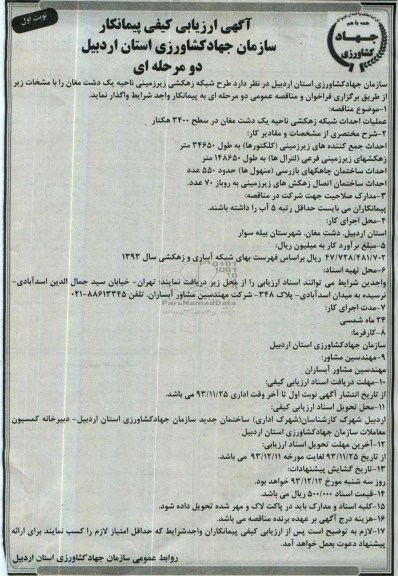 نوبت اول
همه با هم
جهاد
کشاورزی
آگهی ارزیابی کیفی پیمانکار
سازمان جهادکشاورزی استان اردبیل
دو مرحله ای
سازمان جهادکشاورزی استان اردبیل در نظر دارد طرح شبکه زهکشی زیرزمینی ناحیه یک دشت مغان را با مشخات زیر
از طریق برگزاری فراخوان و مناقصه عمومی دو مرحله ای به پیمانکار واجد شرایط واگذار نماید.
۱-موضوع مناقصه:
عملیات احداث شبکه زهکشی ناحیه یک دشت مغان در سطح ۳۴۰۰ هکتار
۲-شرح مختصری از مشخصات و مقادیر کار:
احداث جمع کننده های زیرزمینی (کلکتورها) به طول ۳۴۶۵۰ متر
زهکشهای زیرزمینی فرعی (لترال ها) به طول ۱۴۸۶۵۰ متر
احداث ساختمان چاهکهای بازرسی (منهول ها) حدود ۵۵۰ عدد
احداث ساختمان اتصال زهکش های زیرزمینی به روباز ۷۰ عدد.
۳-مدارک صلاحیت جهت شرکت در مناقصه:
پیمانکاران می بایست حداقل رتبه ۵ آب را داشته باشند.
۴-محل اجرای کار:
استان اردبیل، دشت مغان، شهرستان بیله سوار
۵-مبلغ برآورد کار به میلیون ریال:
۴۷/۷۲۸/۴۸۱/۷۰۲ ریال براساس فهرست بهای شبکه آبیاری و زهکشی سال ۱۳۹۳
۶-محل تهیه اسناد:
واجدین شرایط می توانند اسناد ارزیابی را از محل زیر دریافت نمایند: تهران- خیابان سید جمال الدین اسدآبادی-
نرسیده به میدان اسدآبادی- پلاک ۳۴۸- شرکت مهندسین مشاور آبساران. تلفن ۸۸۶۱۳۳۴۵-۰۲۱
۷-مدت اجرای کار:
۲۴ ماه شمسی
۸-کارفرما:
سازمان جهادکشاورزی استان اردبیل
۹-مهندسین مشاور:
مهندسین مشاور آبساران
۱۰-مهلت دریافت اسناد ارزیابی کیفی:
از تاریخ انتشار آگهی نوبت اول تا آخر وقت اداری ۹۳/۱۱/۲۵ می باشد.
۱۱-محل تحویل اسناد ارزیابی کیفی:
اردبیل شهرک کارشناسان(شهرک اداری) ساختمان جدید سازمان جهادکشاورزی استان اردبیل- دبیرخانه کمسیون
معاملات سازمان جهادکشاورزی استان اردبیل
۱۲-آخرین مهلت تحویل اسناد ارزیابی:
از تاریخ ۹۳/۱۱/۲۵ لغایت مورخه ۹۳/۱۲/۱۱ می باشد.
۱۳-تاریخ گشایش پیشنهادات:
روز سه شنبه مورخ ۹۳/۱۲/۱۲ خواهد بود.
۱۴-قیمت اسناد ۵۰۰/۰۰۰ ریال می باشد.
۱۵-کلیه اسناد و مدارک باید در پاکت لاک و مهر شده تحویل داده شود.
۱۶-هزینه درج آگهی بر عهده برنده مناقصه می باشد.
۱۷-لازم به توضیح است پس از ارزیابی کیفی پیمانکاران واجدشرایط که حداقل امتیاز لازم را کسب نمایند برای ارائه
پیشنهاد دعوت بعمل خواهد آمد.
روابط عمومی سازمان جهادکشاورزی استان اردبیل